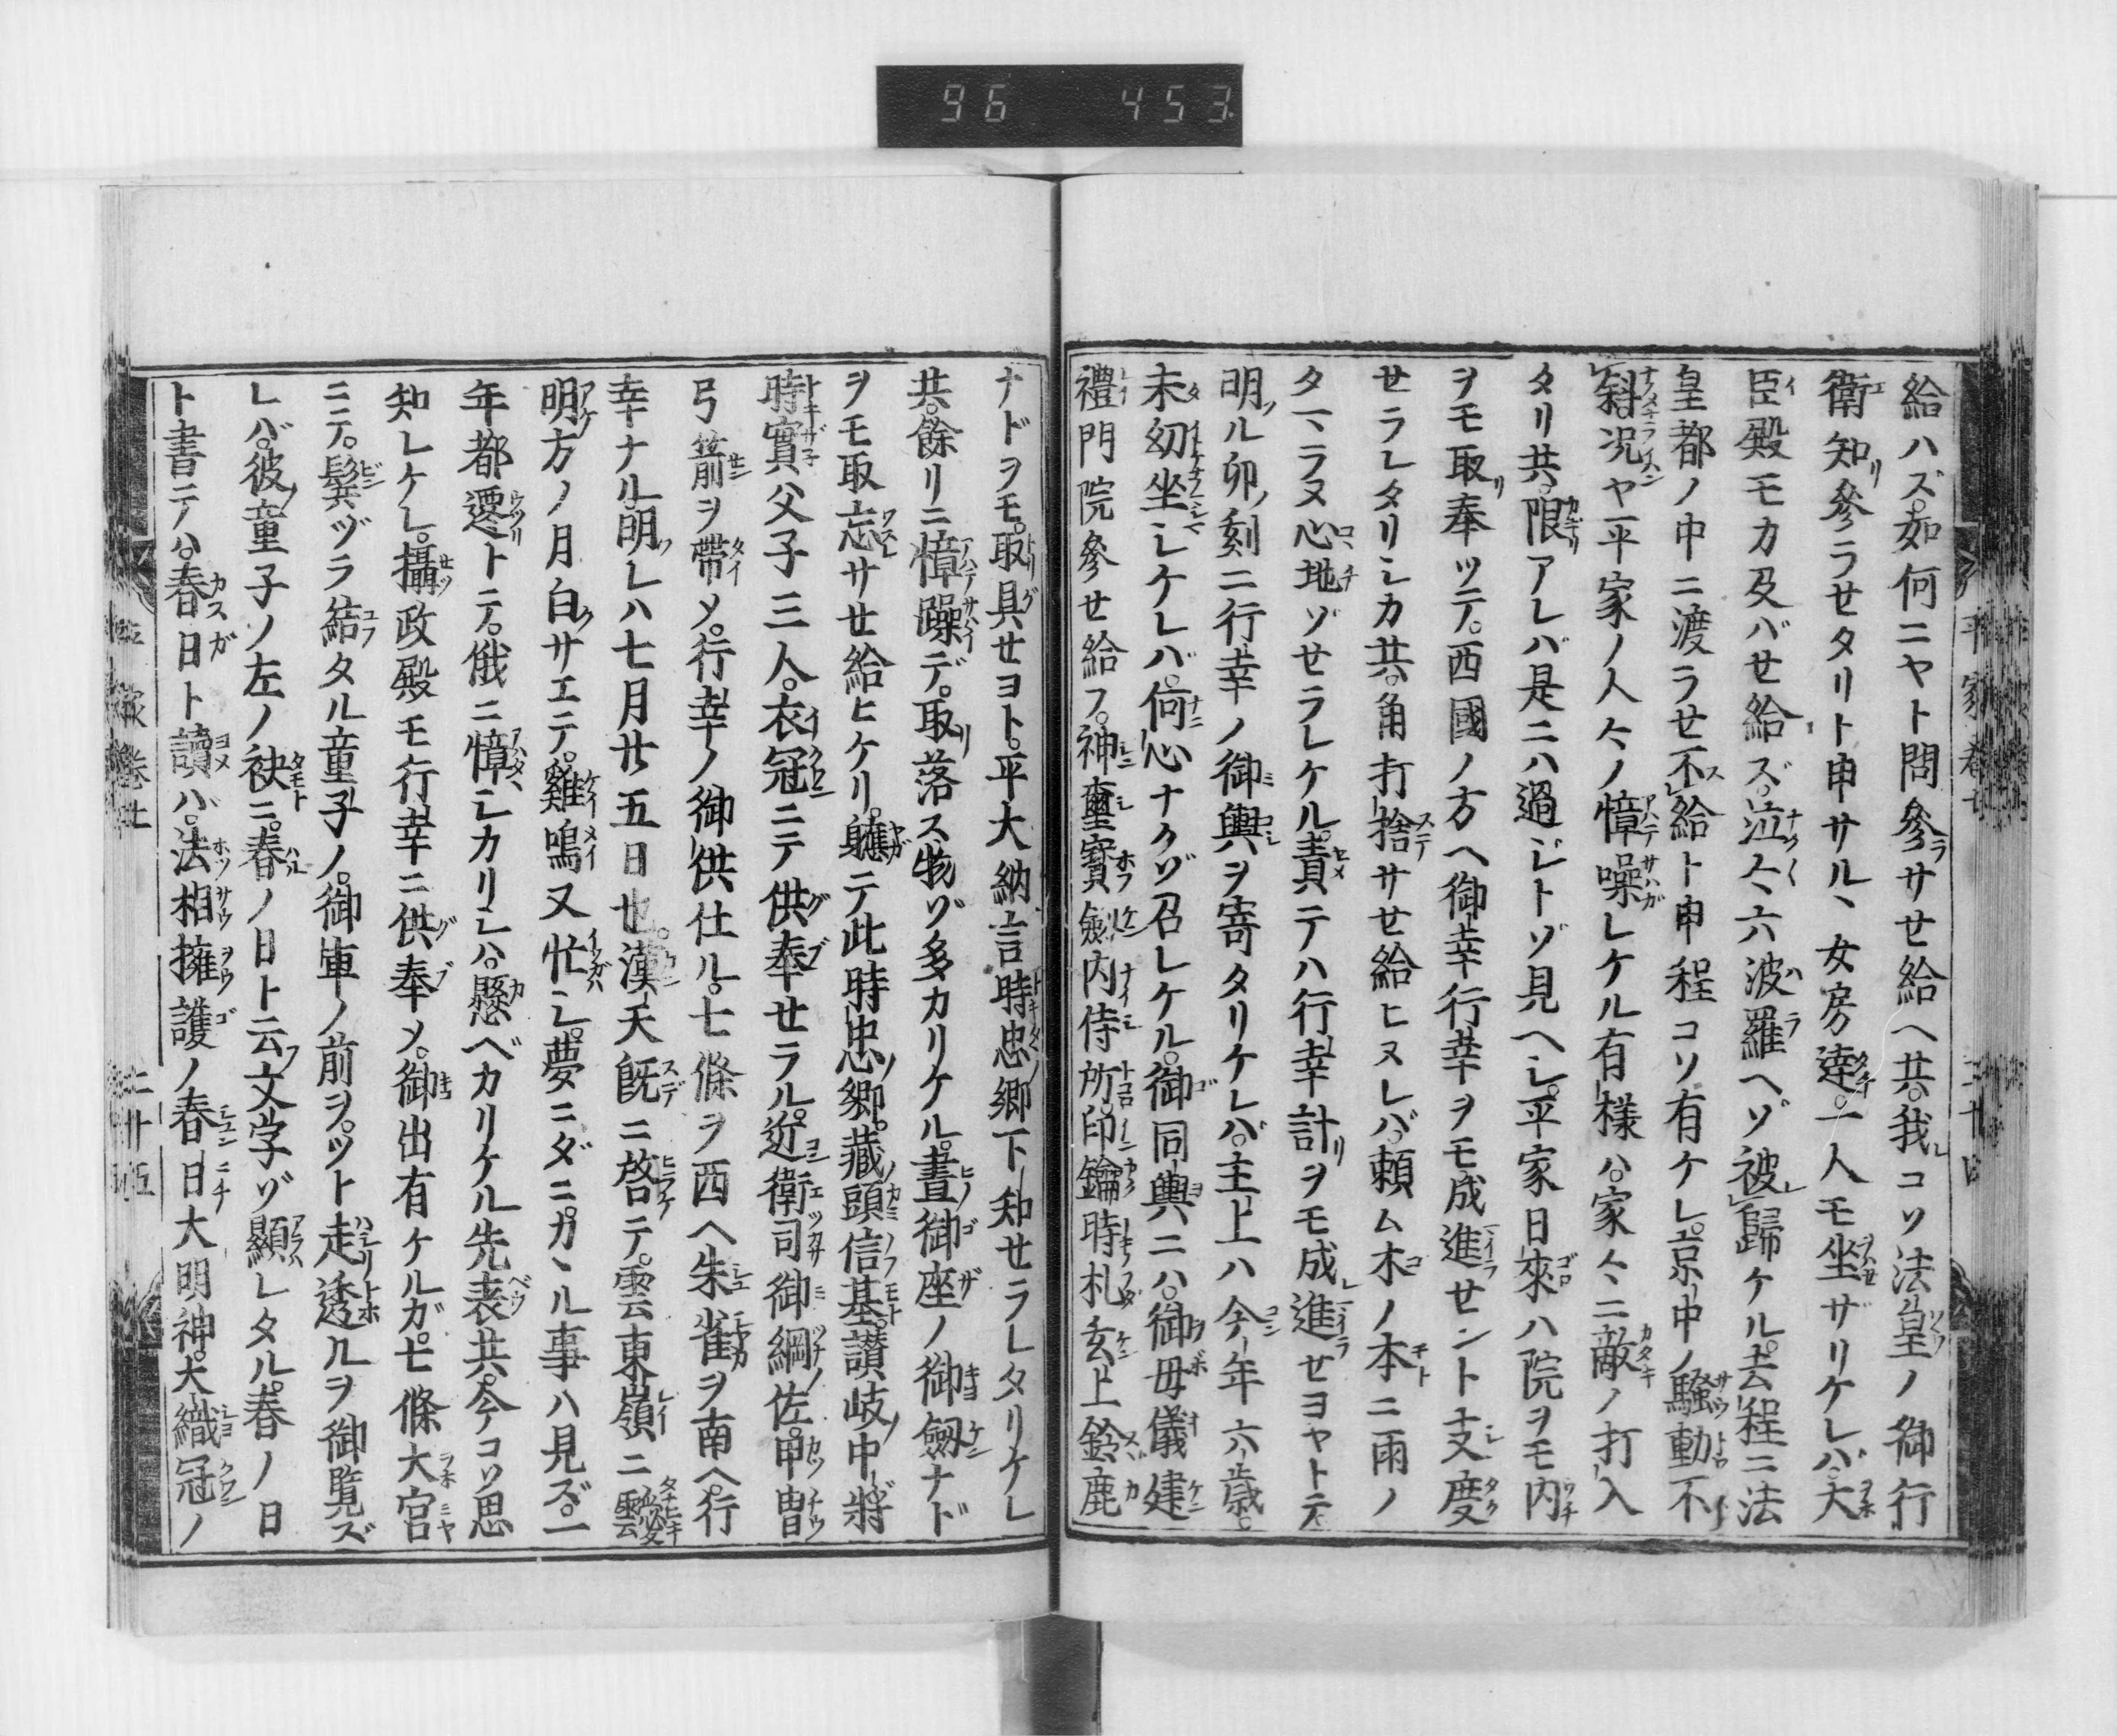 96 453
給ハズ。如何ニヤト問參サセ給ヘ共。我コソ法皇ノ御行
衛知參ラせタリト申サル、女房達。一人モ坐ザリケレバ。大
臣殿モカ及バせ給ズ。泣々六波羅ヘゾ被歸ケル。去程ニ法
皇都ノ中ニ渡ラせ不給ト申程コソ有ケレ。京中ノ騷動不
斜。况ヤ平家ノ人々ノ憻噪レケル有樣ハ。家々ニ敵ノ打入
タリ共。限アレバ是ニハ過じトゾ見ヘシ。平家日來ハ院ヲモ内
ヲモ取奉ツテ。西國ノ方ヘ御幸行幸ヲモ成進せント支度
せラレタリシカ共。角打捨サせ給ヒヌレバ。頼ム木ノ本ニ雨ノ
タマラヌ心地ゾせラレケル。責テハ行幸計ヲモ成進せヨヤトテ
明ル卯ノ刻ニ行幸ノ御輿ヲ寄タリケレバ。主上ハ今年六歳。
未幼坐シケレバ。何心ナクゾ召レケル。御同輿ニハ。御母儀建
禮門院參せ給フ。神璽寳劔内侍所。印鑰時札玄上鈴鹿
ナドヲモ。取具せヨト。平大納言時忠卿下知せラレタリケレ
共。餘リニ憻躁デ。取落ス物ゾ多カリケル。晝御座ノ御劔ナド
ヲモ取忘サせ給ヒケリ。軈テ此時忠卿。藏頭信基。讃岐中將
時實父子三人。衣冠ニテ供奉せラル。近衛司御綱佐。甲冑
弓箭ヲ帶メ。行幸ノ御供仕ル。七條ヲ西ヘ朱雀ヲ南ヘ行
幸ナル。明レハ七月廿五日也。漢天既ニ啓テ。雲東嶺ニ靉
明方ノ月白クサエテ。雞鳴又忙シ。夢ニダニカヽル事ハ見ズ。一
年都遷トテ。俄ニ憻シカリシハ。懸ベカリケル先表共。今コソ思
知レケレ。攝政殿モ行幸ニ供奉メ。御出有ケルガ。七條大宮
ニテ。鬢ヅラ結タル童子ノ。御車ノ前ヲ。ツト走透ルヲ御覧ズ
レバ。彼童子ノ左ノ袂ニ。春ノ日ト云文字ゾ顯レタル。春ノ日
ト書テハ。春日ト讀バ。法相擁護ノ春日大明神。大織冠ノ